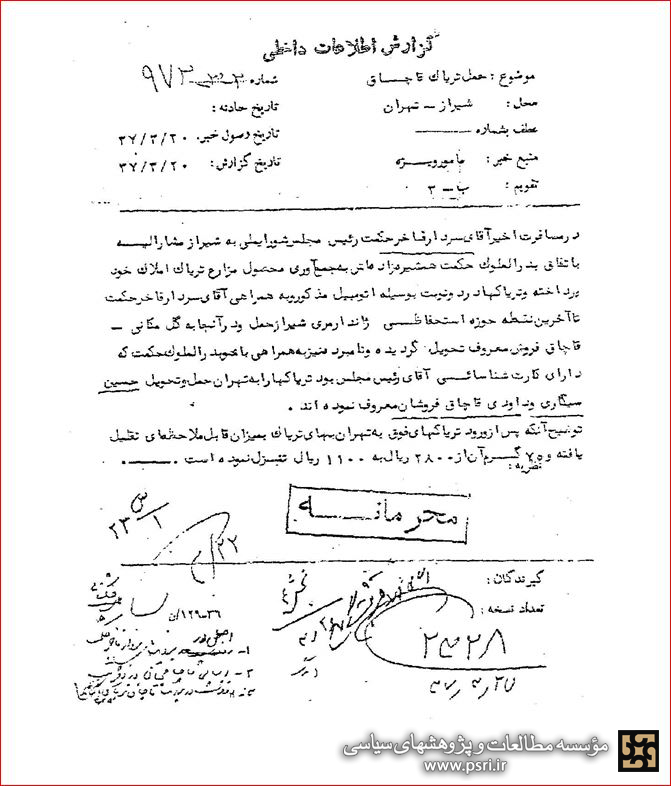 گزارش اطلاعات داخلی
موضوع : حمل تریاک قاچاق
شماره ۹۷۳
محل : شیراز - تهران
تاریخ حادثه :
عطف بشماره
تاریخ وصول خبر : ۳۷/۳/۲۰
منبع خبر : مامور ویژه
تاریخ گزارش : ۳۷/۳/۲۰
تقویم : ب - ۳
در مسافرت اخیر آقای سردار فاخر حکمت رئیس مجلس شورایملی به شیراز مشارالیه
با تفاق بدرالملوک حکمت همشیره زاده اش به جمع آوری محصول مزارع تریاک املاک خود
پرداخته و تریاکها در دو نوبت بوسیله اتومبیل مذکور و به همراهی آقای سردار فاخر حکمت
تا آخرین نقطه حوزه استحفاظی ژاندارمری شیراز حمل و در آنجا به گل مکانی -
قاچاق فروش معروف تحویل گردیده و نامبرده نیز به همراهی بانو بدرالملوک حکمت که
دارای کارت شناسائی آقای رئیس مجلس بود تریاکها را به تهران حمل و تحویل حسین
سیگاری و داودی قاچاق فروشان معروف نموده اند .
توضیح آنکه پس از ورود تریاکهای فوق به تهران بهای تریاک بمیزان قابل ملاحظه ای تقلیل
یافته و ۷۵ گرم آن از ۲۸۰۰ ریال به ۱۱۰۰ ریال تنزل نموده است .
نظریه :
محرمانه
گیرندگان :
تعداد نسخه :
۲۳۲۸
۱۲۹-۳۶/ن
مؤسسه مطالعات و پژوهشهای سیاسی
www.psri.ir